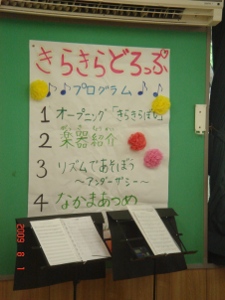 きらきらどろっぷ
♪♪プログラム♪♪
1 オープニング「きらきらぼし」
2 楽器紹介
がっき しょうかい
3 リズムであそぼう
～アンダーザシー～
4 なかまあつめ
2009 8 1